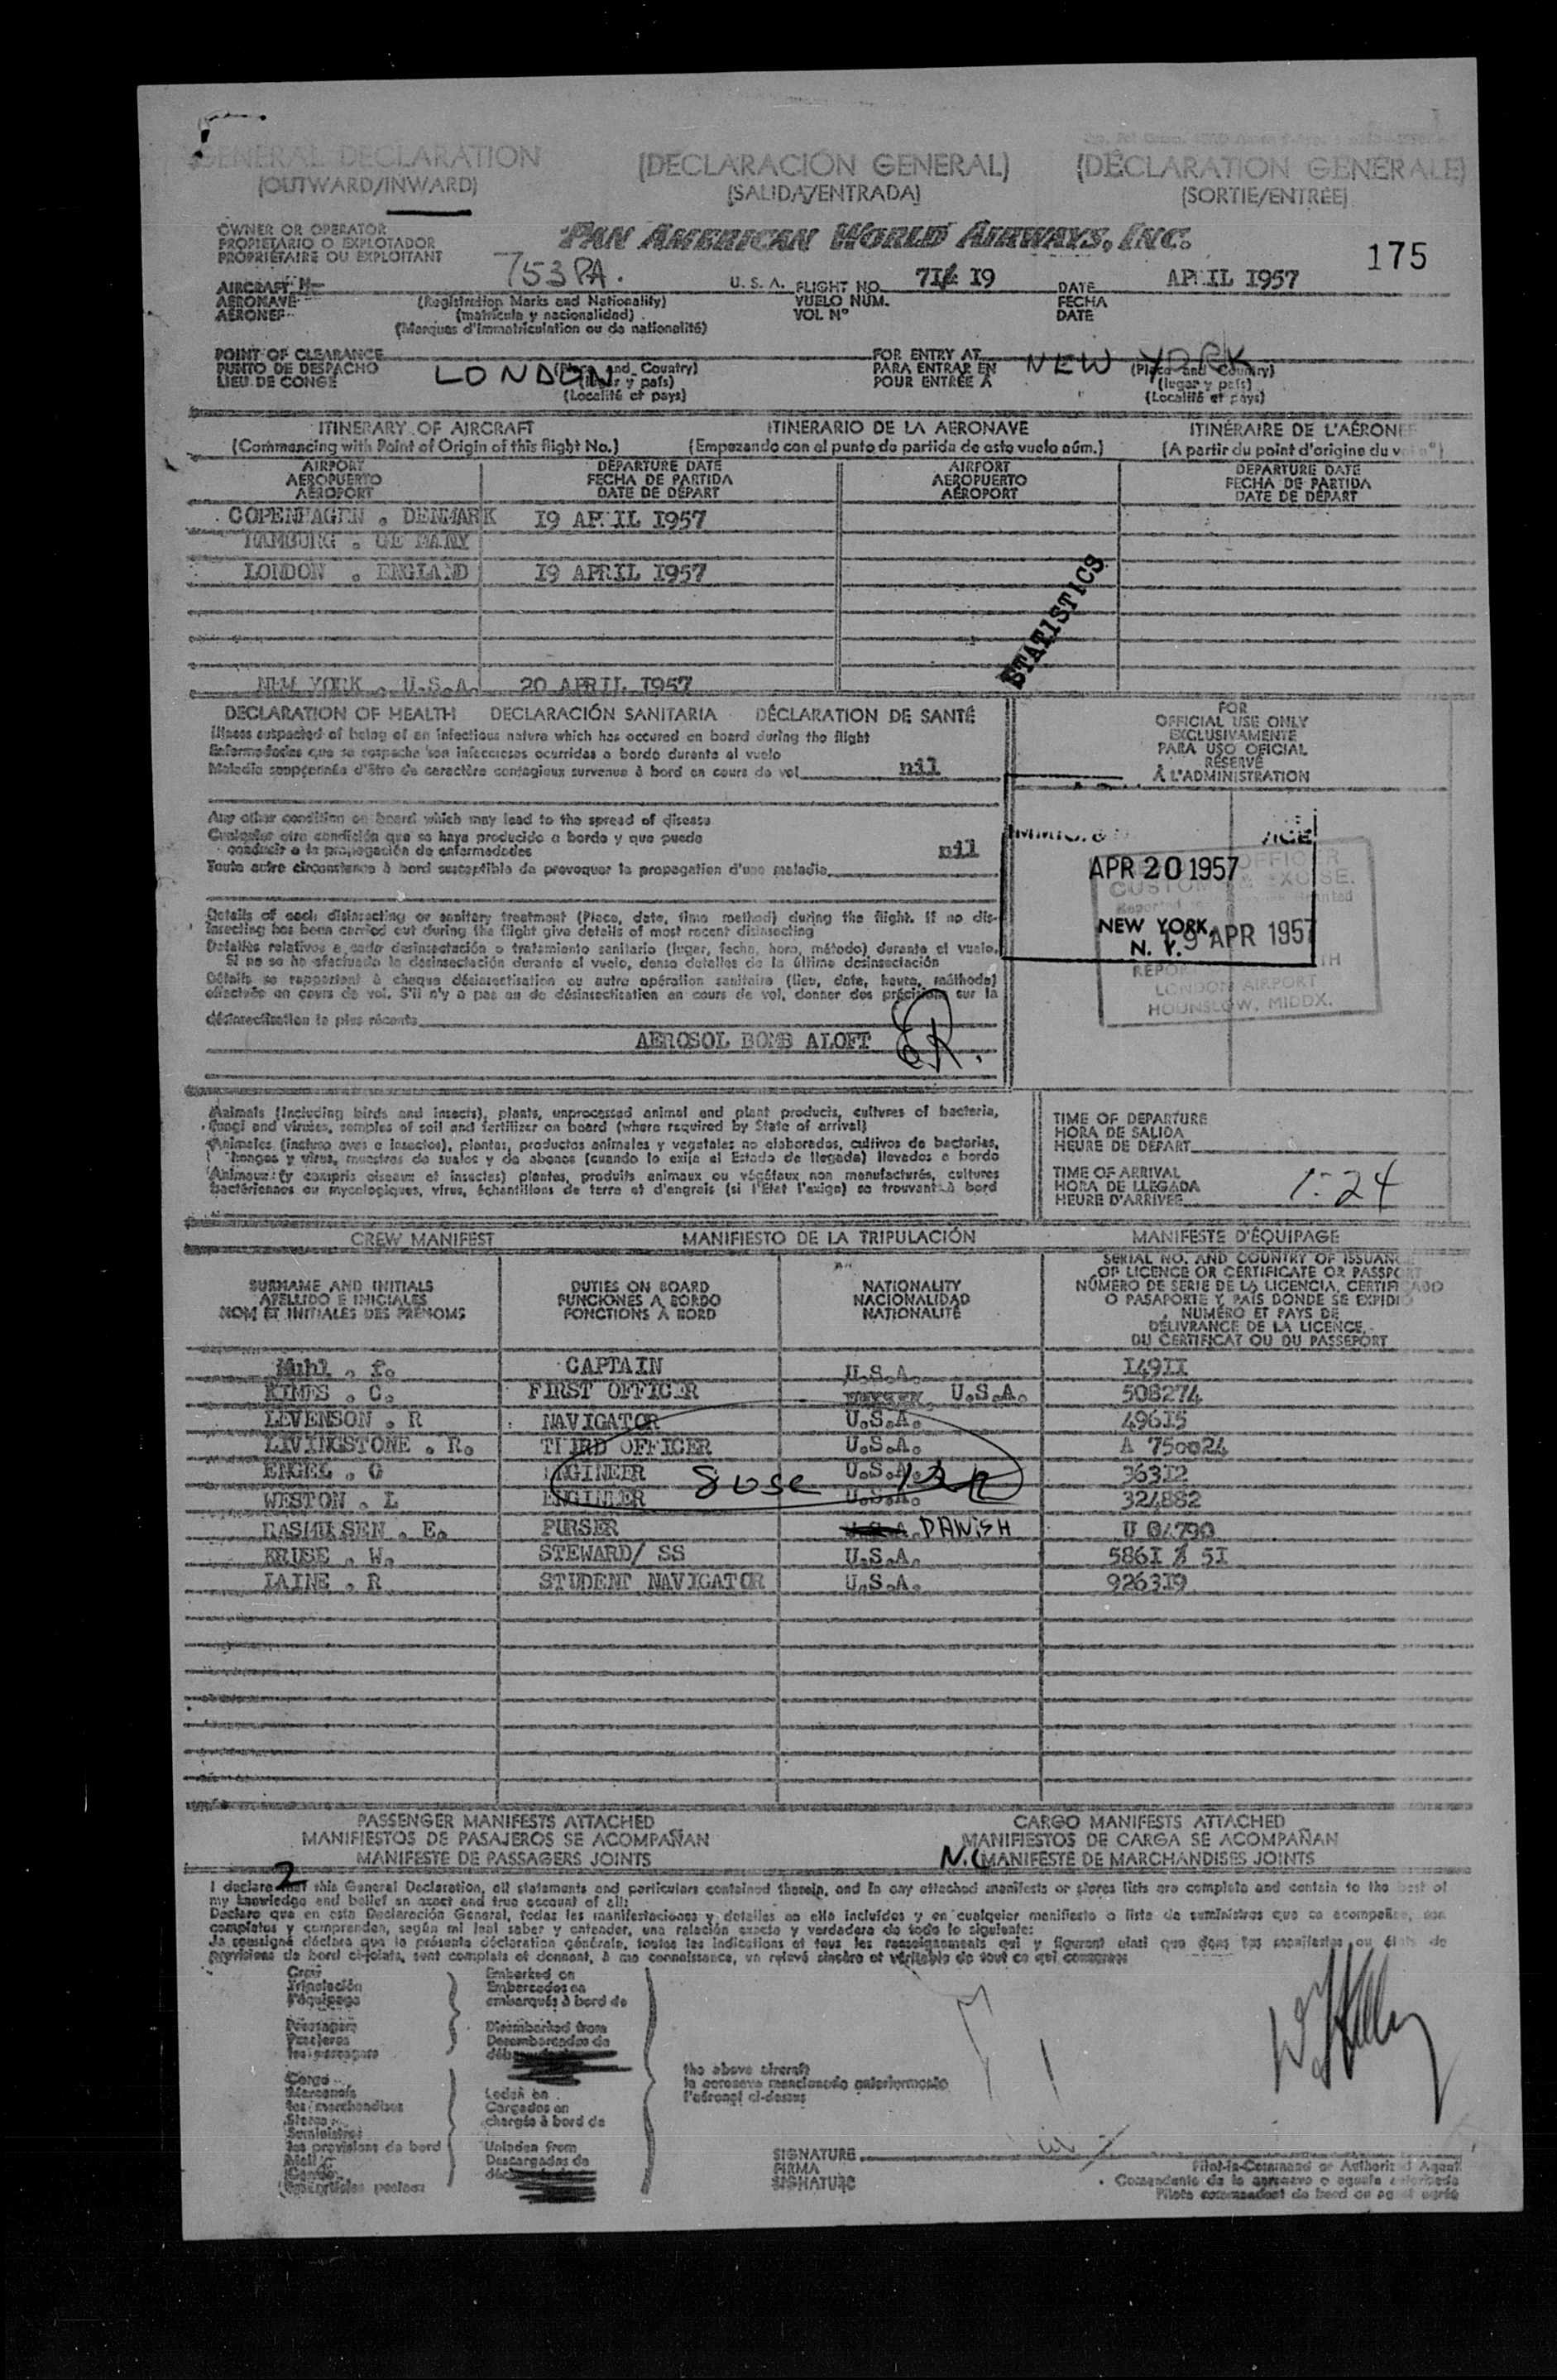 GENERAL DECLARATION (DECLARACIÓN GENERAL) (DÉCLARATION GENERALE)
(OUTWARD/INWARD) (SALIDA/ENTRADA) (SORTIE/ENTRÉE)
OWNER OR OPERATOR
PROPIETARIO O EXPLOTADOR
PROPRIÉTAIRE OU EXPLOITANT
PAN AMERICAN WORLD AIRWAYS, INC.
175
AIRCRAFT N- 753PA. U. S. A. FLIGHT NO. 71 19 DATE APRIL 1957
AERONAVE (Registration Marks and Nationality) VUELO NÚM. FECHA
AÉRONEF (matrícula y nacionalidad) VOL Nº DATE
(Marques d'immatriculation ou de nationalité)
POINT OF CLEARANCE LONDON (Place and Country) FOR ENTRY AT NEW YORK (Place and Country)
PUNTO DE DESPACHO (lugar y país) PARA ENTRAR EN (lugar y país)
LIEU DE CONGÉ (Localité et pays) POUR ENTRÉE À (Localité et pays)
ITINERARY OF AIRCRAFT ITINERARIO DE LA AERONAVE ITINÉRAIRE DE L'AÉRONEF
(Commencing with Point of Origin of this flight No.) (Empezando con el punto de partida de este vuelo núm.) (A partir du point d'origine du vol nº)
AIRPORT DEPARTURE DATE AIRPORT DEPARTURE DATE
AEROPUERTO FECHA DE PARTIDA AEROPUERTO FECHA DE PARTIDA
AÉROPORT DATE DE DÉPART AÉROPORT DATE DE DÉPART
COPENHAGEN . DENMARK 19 APRIL 1957
HAMBURG . GE MANY
LONDON . ENGLAND 19 APRIL 1957
STATISTICS
NEW YORK . U.S.A. 20 APRIL 1957
DECLARATION OF HEALTH DECLARACIÓN SANITARIA DÉCLARATION DE SANTÉ
Illness suspected of being of an infectious nature which has occured on board during the flight
Enfermedades que se sospecha son infecciosas ocurridas a bordo durante el vuelo
Maladie soupçonnée d'être de caractère contagieux survenue à bord en cours de vol nil
FOR
OFFICIAL USE ONLY
EXCLUSIVAMENTE
PARA USO OFICIAL
RÉSERVÉ
À L'ADMINISTRATION
Any other condition on board which may lead to the spread of disease
Cualquier otra condición que se haya producido a bordo y que pueda
conducir a la propagación de enfermedades nil
Toute autre circonstance à bord susceptible de provoquer la propagation d'une maladie
APR 20 1957
NEW YORK,
N. Y.
OFFICER
CUSTOMS & EXCISE.
9 APR 1957
LONDON AIRPORT
HOUNSLOW, MIDDX.
Details of each disinsecting or sanitary treatment (Place, date, time method) during the flight. If no dis-
insecting has been carried out during the flight give details of most recent disinsecting
Detalles relativos a cada desinsectación o tratamiento sanitario (lugar, fecha, hora, método) durante el vuelo.
Si no se ha efectuado la desinsectación durante el vuelo, dense detalles de la última desinsectación
Détails se rapportant à chaque désinsectisation ou autre opération sanitaire (lieu, date, heure, méthode)
effectuée en cours de vol. S'il n'y a pas eu de désinsectisation en cours de vol, donner des précisions sur la
désinsectisation la plus récente
AEROSOL BOMB ALOFT ER.
Animals (including birds and insects), plants, unprocessed animal and plant products, cultures of bacteria,
fungi and viruses, samples of soil and fertilizer on board (where required by State of arrival)
Animales (incluso aves e insectos), plantas, productos animales y vegetales no elaborados, cultivos de bacterias,
hongos y virus, muestras de suelos y de abonos (cuando lo exija el Estado de llegada) llevados a bordo
Animaux (y compris oiseaux et insectes) plantes, produits animaux ou végétaux non manufacturés, cultures
bactériennes ou mycologiques, virus, échantillons de terre et d'engrais (si l'État l'exige) se trouvant à bord
TIME OF DEPARTURE
HORA DE SALIDA
HEURE DE DÉPART
TIME OF ARRIVAL
HORA DE LLEGADA
HEURE D'ARRIVÉE 1:24
CREW MANIFEST MANIFIESTO DE LA TRIPULACIÓN MANIFESTE D'ÉQUIPAGE
SURNAME AND INITIALS DUTIES ON BOARD NATIONALITY SERIAL NO. AND COUNTRY OF ISSUANCE
APELLIDO E INICIALES FUNCIONES A BORDO NACIONALIDAD OF LICENCE OR CERTIFICATE OR PASSPORT
NOM ET INITIALES DES PRÉNOMS FONCTIONS À BORD NATIONALITÉ NÚMERO DE SERIE DE LA LICENCIA, CERTIFICADO
O PASAPORTE Y PAÍS DONDE SE EXPIDIÓ
NUMÉRO ET PAYS DE
DÉLIVRANCE DE LA LICENCE,
DU CERTIFICAT OU DU PASSEPORT
Muhl . f. CAPTAIN U.S.A. 14911
KIMES . C. FIRST OFFICER U.S.A. 508274
LEVENSON . R NAVIGATOR U.S.A. 49615
LIVINGSTONE . R. THIRD OFFICER U.S.A. A 750024
ENGEL . G ENGINEER U.S.A. 36312
WESTON . L ENGINEER U.S.A. 324882
RASMUSEN . E. PURSER DANISH U 04790
KRUSE . W. STEWARD/ SS U.S.A. 5861 51
LAINE . R STUDENT NAVIGATOR U.S.A. 926319
PASSENGER MANIFESTS ATTACHED CARGO MANIFESTS ATTACHED
MANIFIESTOS DE PASAJEROS SE ACOMPAÑAN MANIFIESTOS DE CARGA SE ACOMPAÑAN
MANIFESTE DE PASSAGERS JOINTS MANIFESTE DE MARCHANDISES JOINTS
2
I declare that this General Declaration, all statements and particulars contained therein, and in any attached manifests or stores lists are complete and contain to the best of
my knowledge and belief an exact and true account of all:
Declaro que en esta Declaración General, todas las manifestaciones y detalles en ella incluídos y en cualquier manifiesto o lista de suministros que se acompañen, son
completos y comprenden, según mi leal saber y entender, una relación exacta y verdadera de todo lo siguiente:
Je soussigné déclare que la présente déclaration générale, toutes les indications et tous les renseignements qui y figurent ainsi que dans les manifestes ou états de
provisions de bord ci-joints, sont complets et donnent, à ma connaissance, un relevé sincère et véritable de tout ce qui concerne
Crew Embarked on
Tripulación Embarcados en
l'équipage embarqués à bord de
Passagers Disembarked from
Pasajeros Desembarcados de
les passagers
the above aircraft
la aeronave mencionada anteriormente
l'aéronef ci-dessus
Cargo
Mercancía Laden on
les marchandises Cargados en
Stores chargés à bord de
Suministros
les provisions de bord Unladen from
Mail Descargados de
SIGNATURE
FIRMA
SIGNATURE
Pilot-in-Command or Authorized Agent
Comandante de la aeronave o agente autorizado
Pilote commandant de bord ou agent agréé